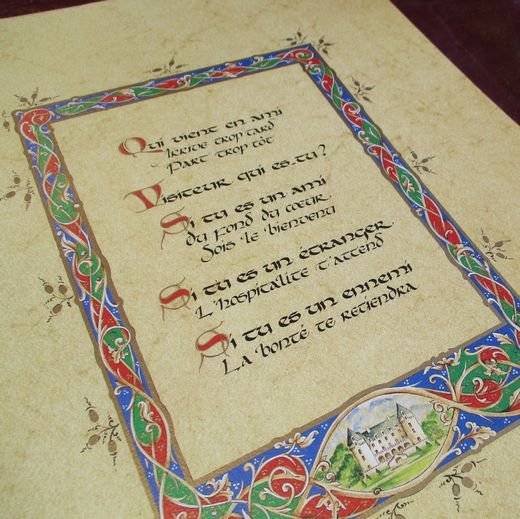 Qui vient en ami
Arrive trop tard
Part trop tôt
Visiteur qui es-tu?
Si tu es un ami
Du fond du cœur
Sois le bienvenu
Si tu es un étranger
L'hospitalité t'attend
Si tu es un ennemi
La bonté te retiendra